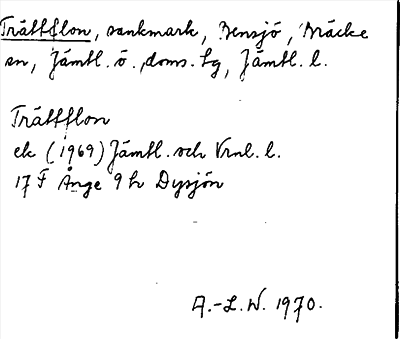 Trättflon, sankmark, Bensjö, Bräcke
sn, Jämtl. ö. doms. tg, Jämtl. l.
Trättflon
ek (1969) Jämtl. och Vrnl. l.
17 F Ånge 9 h Dysjön
A.-L. W. 1970.